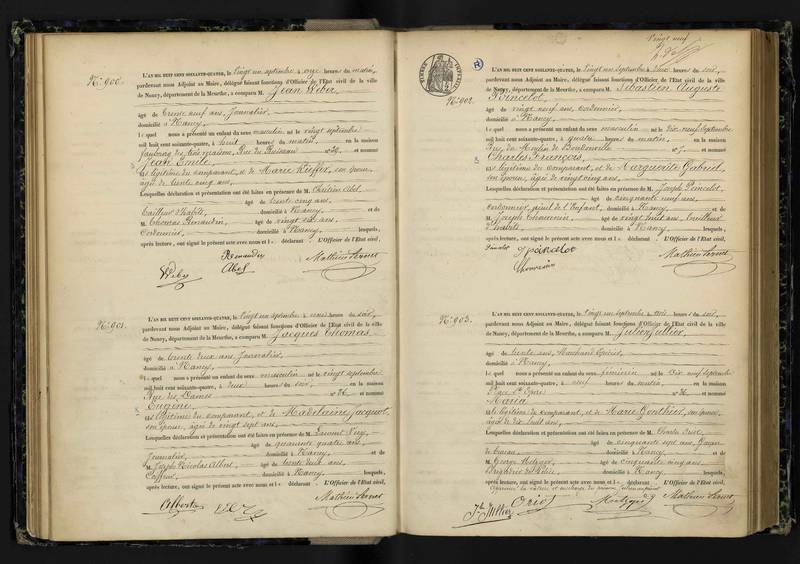 N° 900.
L'AN MIL HUIT CENT SOIXANTE-QUATRE, le vingt un septembre à onze heures du matin,
pardevant nous Adjoint au Maire, délégué faisant fonctions d'Officier de l'Etat civil de la ville
de Nancy, département de la Meurthe, a comparu M. Jean Weber
âgé de trente neuf ans, Journalier,
domicilié à Nancy,
lequel nous a présenté un enfant du sexe masculin né le vingt septembre
mil huit cent soixante-quatre, à huit heures du matin, en la maison
Faubourg des trois maisons, Rue du Ruisseau n° et nommé
Jean Emile,
fils légitime du comparant, et de Marie Kieffer, son épouse,
âgée de trente cinq ans,
Lesquelles déclaration et présentation ont été faites en présence de M. Chrétien Abel
âgé de trente cinq ans,
tailleur d'habits, domicilié à Nancy, et de
M. Thomas Renaudin, âgé de vingt ans,
cordonnier, domicilié à Nancy, lesquels,
après lecture, ont signé le présent acte avec nous et l déclarant. L'Officier de l'Etat civil,
Renaudin
Weber Abel Mathieu
N° 901.
L'AN MIL HUIT CENT SOIXANTE-QUATRE, le vingt un septembre à heures du soir,
pardevant nous Adjoint au Maire, délégué faisant fonctions d'Officier de l'Etat civil de la ville
de Nancy, département de la Meurthe, a comparu M. Jacques Thomas
âgé de trente deux ans, Journalier,
domicilié à Nancy,
lequel nous a présenté un enfant du sexe masculin né le vingt septembre
mil huit cent soixante-quatre, à deux heures du soir, en la maison
Rue des Dames n° 36, et nommé
Eugène,
fils légitime du comparant, et de Madelaine Jacquot,
son épouse, âgée de vingt sept ans,
Lesquelles déclaration et présentation ont été faites en présence de M.
âgé de quarante quatre ans,
Journalier, domicilié à Nancy, et de
M. Joseph Nicolas Albert, âgé de trente deux ans,
Coiffeur, domicilié à Nancy, lesquels,
après lecture, ont signé le présent acte avec nous et l déclarant. L'Officier de l'Etat civil,
Albert Mathieu
Vingt neuf
N° 902.
L'AN MIL HUIT CENT SOIXANTE-QUATRE, le vingt un septembre à heures du soir,
pardevant nous Adjoint au Maire, délégué faisant fonctions d'Officier de l'Etat civil de la ville
de Nancy, département de la Meurthe, a comparu M. Sébastien Auguste
Poincelot,
âgé de vingt neuf ans, cordonnier,
domicilié à Nancy,
lequel nous a présenté un enfant du sexe masculin né le dix neuf septembre
mil huit cent soixante-quatre, à quatre heures du matin, en la maison
Rue du Moulin de Boudonville n° 7 et nommé
Charles François,
fils légitime du comparant, et de Marguerite Gabriel,
son épouse, âgée de vingt cinq ans,
Lesquelles déclaration et présentation ont été faites en présence de M. Joseph Poincelot,
âgé de cinquante neuf ans,
cordonnier, aïeul de l'Enfant, domicilié à Nancy, et de
M. Joseph Chouvenin, âgé de vingt huit ans, tailleur
d'habits, domicilié à Nancy, lesquels,
après lecture, ont signé le présent acte avec nous et l déclarant. L'Officier de l'Etat civil,
Poincelot Mathieu
Chouvenin
N° 903.
L'AN MIL HUIT CENT SOIXANTE-QUATRE, le vingt un septembre à trois heures du soir,
pardevant nous Adjoint au Maire, délégué faisant fonctions d'Officier de l'Etat civil de la ville
de Nancy, département de la Meurthe, a comparu M. Julien Jullier,
âgé de trente ans, Marchand Epicier,
domicilié à Nancy,
lequel nous a présenté un enfant du sexe féminin né le dix neuf septembre
mil huit cent soixante-quatre, à neuf heures du matin, en la maison
Place St Epvre n° 36, et nommé
Maria
fille légitime du comparant, et de Marie Gonthier, son épouse,
âgée de dix huit ans,
Lesquelles déclaration et présentation ont été faites en présence de M. Charles Oriot,
âgé de cinquante sept ans, Garçon
de bureau, domicilié à Nancy, et de
M. George Metzger, âgé de cinquante cinq ans,
Brigadier de Police, domicilié à Nancy, lesquels,
après lecture, ont signé le présent acte avec nous et l déclarant. L'Officier de l'Etat civil,
Oriot Metzger Mathieu